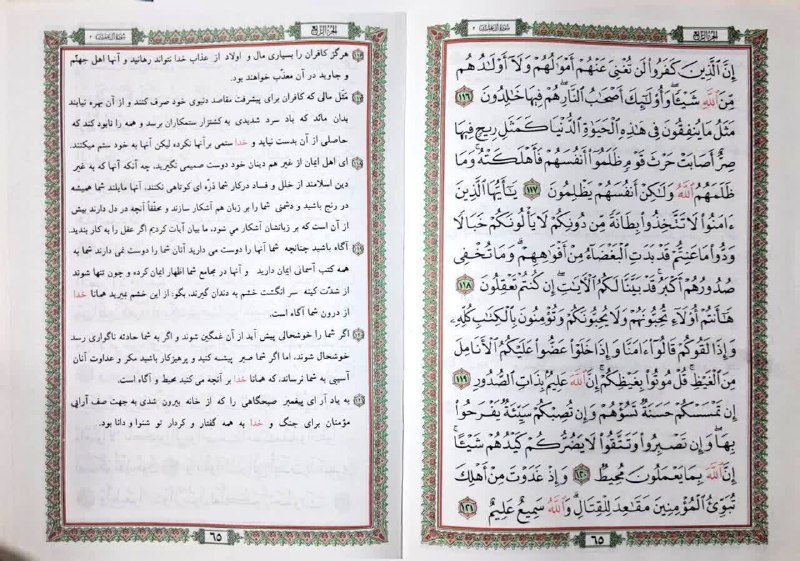 الجزء الرابع
سورة آل عمران ٣
إِنَّ ٱلَّذِينَ كَفَرُوا۟ لَن تُغْنِىَ عَنْهُمْ أَمْوَٰلُهُمْ وَلَآ أَوْلَـٰدُهُم
مِّنَ ٱللَّهِ شَيْـًٔا ۖ وَأُو۟لَـٰٓئِكَ أَصْحَـٰبُ ٱلنَّارِ ۚ هُمْ فِيهَا خَـٰلِدُونَ ١١٦
مَثَلُ مَا يُنفِقُونَ فِى هَـٰذِهِ ٱلْحَيَوٰةِ ٱلدُّنْيَا كَمَثَلِ رِيحٍ فِيهَا
صِرٌّ أَصَابَتْ حَرْثَ قَوْمٍ ظَلَمُوٓا۟ أَنفُسَهُمْ فَأَهْلَكَتْهُ ۚ وَمَا
ظَلَمَهُمُ ٱللَّهُ وَلَـٰكِنْ أَنفُسَهُمْ يَظْلِمُونَ ١١٧ يَـٰٓأَيُّهَا ٱلَّذِينَ
ءَامَنُوا۟ لَا تَتَّخِذُوا۟ بِطَانَةً مِّن دُونِكُمْ لَا يَأْلُونَكُمْ خَبَالًا
وَدُّوا۟ مَا عَنِتُّمْ قَدْ بَدَتِ ٱلْبَغْضَآءُ مِنْ أَفْوَٰهِهِمْ وَمَا تُخْفِى
صُدُورُهُمْ أَكْبَرُ ۚ قَدْ بَيَّنَّا لَكُمُ ٱلْـَٔايَـٰتِ ۖ إِن كُنتُمْ تَعْقِلُونَ ١١٨
هَـٰٓأَنتُمْ أُو۟لَآءِ تُحِبُّونَهُمْ وَلَا يُحِبُّونَكُمْ وَتُؤْمِنُونَ بِٱلْكِتَـٰبِ كُلِّهِۦ
وَإِذَا لَقُوكُمْ قَالُوٓا۟ ءَامَنَّا وَإِذَا خَلَوْا۟ عَضُّوا۟ عَلَيْكُمُ ٱلْأَنَامِلَ
مِنَ ٱلْغَيْظِ ۚ قُلْ مُوتُوا۟ بِغَيْظِكُمْ ۗ إِنَّ ٱللَّهَ عَلِيمٌۢ بِذَاتِ ٱلصُّدُورِ ١١٩
إِن تَمْسَسْكُمْ حَسَنَةٌ تَسُؤْهُمْ وَإِن تُصِبْكُمْ سَيِّئَةٌ يَفْرَحُوا۟
بِهَا ۖ وَإِن تَصْبِرُوا۟ وَتَتَّقُوا۟ لَا يَضُرُّكُمْ كَيْدُهُمْ شَيْـًٔا ۗ
إِنَّ ٱللَّهَ بِمَا يَعْمَلُونَ مُحِيطٌ ١٢٠ وَإِذْ غَدَوْتَ مِنْ أَهْلِكَ
تُبَوِّئُ ٱلْمُؤْمِنِينَ مَقَـٰعِدَ لِلْقِتَالِ ۗ وَٱللَّهُ سَمِيعٌ عَلِيمٌ ١٢١
٦٥
الجزء الرابع
سورة آل عمران ٣
١١٦ هرگز کافران را بسیاری مال و اولاد از عذاب خدا نتواند رهانید و آنها اهل جهنّم
و جاوید در آن معذّب خواهند بود.
١١٧ مَثَل مالی که کافران برای پیشرفت مقاصد دنیوی خود صرف کنند و از آن بهره نیابند
بدان ماند که باد سرد شدیدی به کشتزار ستمکاران برسد و همه را نابود کند که
حاصلی از آن بدست نیاید و خدا ستمی برآنها نکرده لیکن آنها به خود ستم میکنند.
١١٨ ای اهل ایمان از غیر هم دینان خود دوست صمیمی نگیرید، چه آنکه آنها که به غیر
دین اسلامند از خلل و فساد درکار شما ذرّه ای کوتاهی نکنند. آنها مایلند شما همیشه
در رنج باشید و دشمنی شما را بر زبان هم آشکار سازند و محققاً آنچه در دل دارند بیش
از آن است که بر زبانشان آشکار می شود، ما بیان آیات کردیم اگر عقل را به کار بندید.
١١٩ آگاه باشید چنانچه شما آنها را دوست می دارید آنان شما را دوست نمی دارند شما به
همه کتب آسمانی ایمان دارید و آنها در مجامع شما اظهار ایمان کرده و چون تنها شوند
از شدّت کینه سر انگشت خشم به دندان گیرند، بگو: از این خشم بمیرید همانا خدا
از درون شما آگاه است.
١٢٠ اگر شما را خوشحالی پیش آید از آن غمگین شوند و اگر به شما حادثه ناگواری رسد
خوشحال شوند، اما اگر شما صبر پیشه کنید و پرهیزکار باشید مکر و عداوت آنان
آسیبی به شما نرساند، که همانا خدا بر آنچه می کنید محیط و آگاه است.
١٢١ به یاد آر ای پیغمبر صبحگاهی را که از خانه بیرون شدی به جهت صف آرایی
مؤمنان برای جنگ و خدا به همه گفتار و کردار تو شنوا و دانا بود.
٦٥